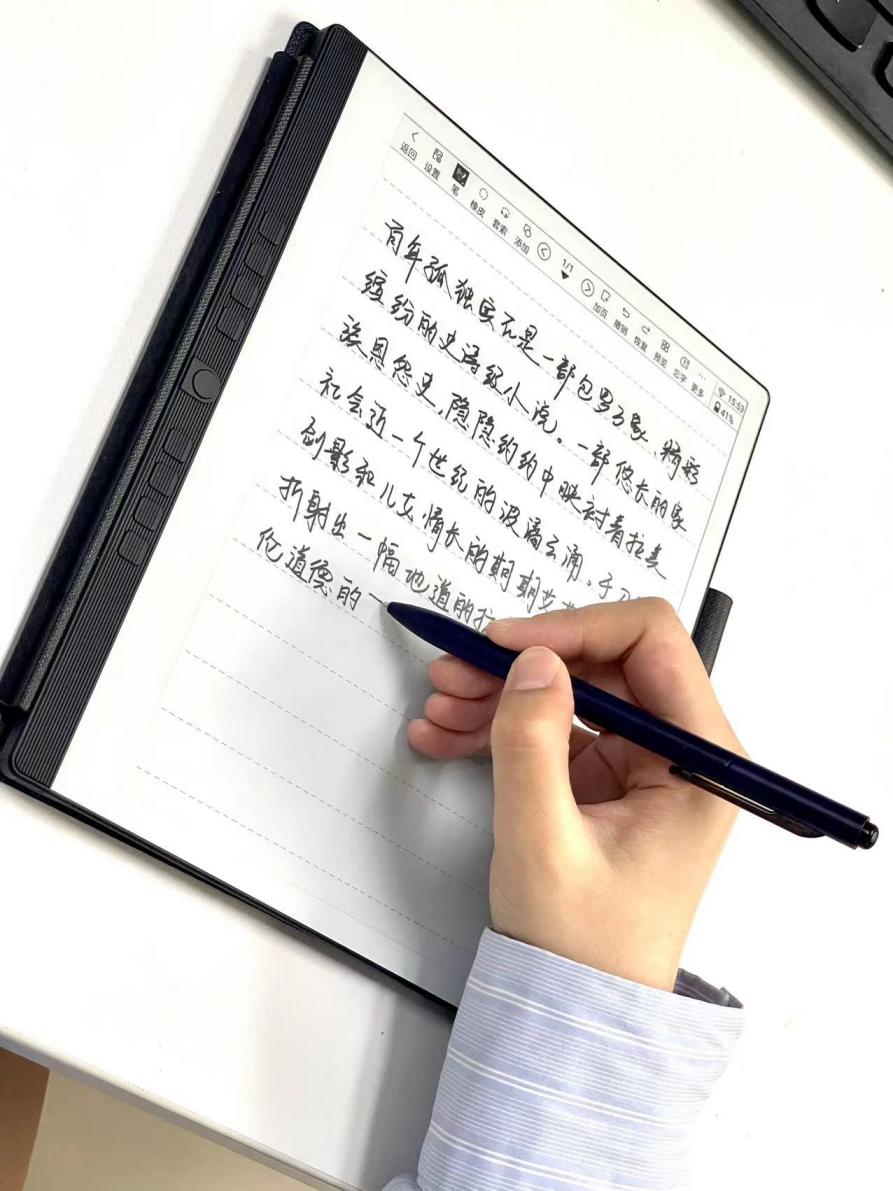 返回 设置 笔 橡皮 套索 添加 1/1 加页 撤销 恢复 预览 忘字 更多 15:53 41%
百年孤独实在是一部包罗万象、精彩
缤纷的史诗级小说。一部悠长的家
族恩怨史,隐隐约约中映衬着拉美
社会近一个世纪的波谲云涌。于刀
剑影和儿女情长的期期艾艾
折射出一幅地道的拉
伦道德的一